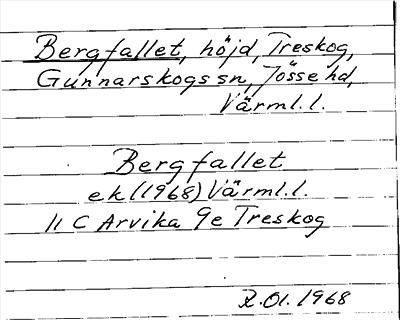 Bergfallet, höjd, Treskog,
Gunnarskogs sn, Jösse hd,
Värml. l.
Bergfallet
ek (1968) Värml. l.
11 C Arvika 9e Treskog
R.O1. 1968